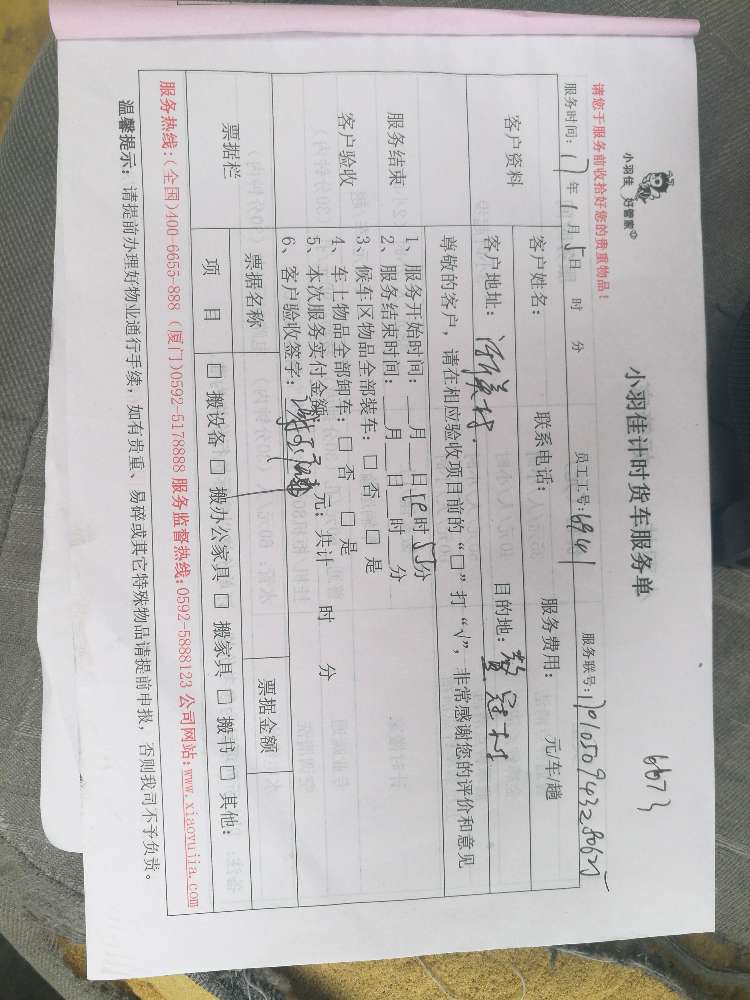 6673
小羽佳 好管家
小羽佳计时货车服务单
请您于服务前收拾好您的贵重物品！
服务时间：17年1月5日 时 分 员工工号：6941 服务联号：
客户资料
客户姓名： 联系电话： 服务费用： 元/车/趟
客户地址： 目的地：
尊敬的客户，请在相应验收项目前的“□”打“√”，非常感谢您的评价和意见
服务结束
客户验收
1、服务开始时间：__月__日12时55分
2、服务结束时间：__月__日__时__分
3、候车区物品全部装车：□ 否 □ 是
4、车上物品全部卸车：□ 否 □ 是
5、本次服务实付金额 元；共计 时 分
6、客户验收签字：
票据栏
票据名称 票据金额
项 目 □ 搬设备 □ 搬办公家具 □ 搬家具 □ 搬书 □ 其他：
服务热线:(全国)400-6655-888 (厦门)0592-5178888 服务监督热线:0592-5888123 公司网站:www.xiaoyujia.com
温馨提示：请提前办理好物业通行手续，如有贵重、易碎或其它特殊物品请提前申报，否则我司不予负责。